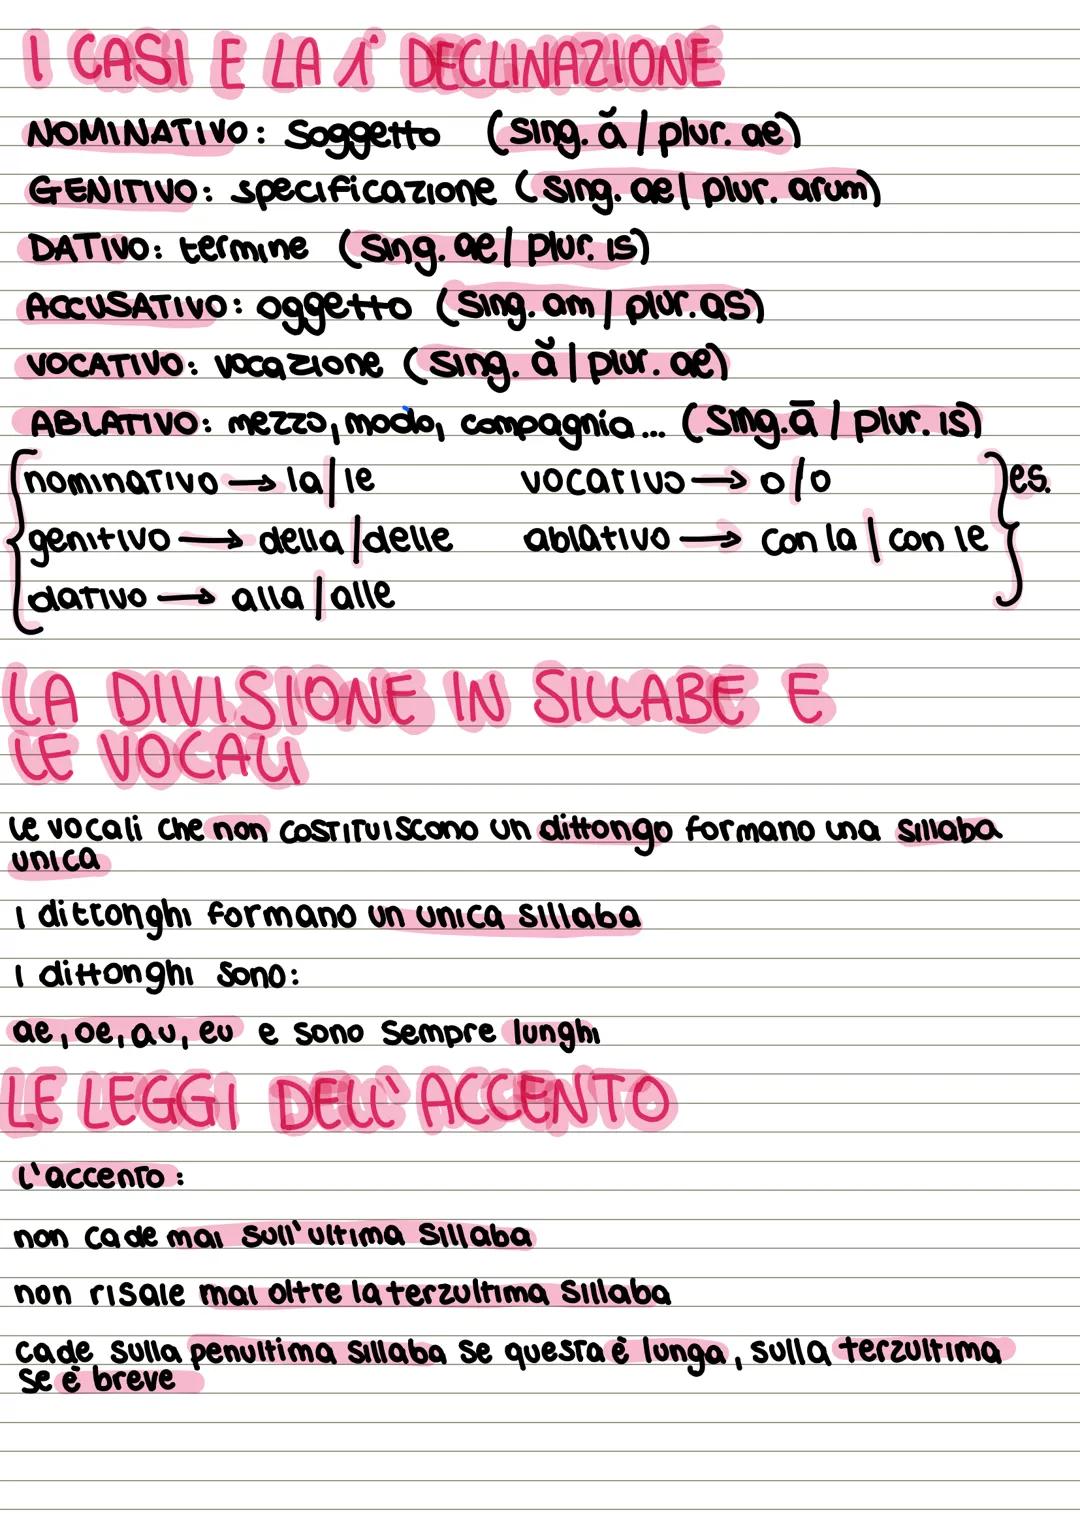 I CASI E LA 1° DECLINAZIONE
NOMINATIVO: soggetto (sing. ă / plur. ae)
GENITIVO: specificazione (sing. ae / plur. arum)
DATIVO: termine (sing. ae / plur. is)
ACCUSATIVO: oggetto (sing. am / plur. as)
VOCATIVO: vocazione (sing. ă / plur. ae)
ABLATIVO: mezzo, modo, compagnia... (sing. ā / plur. is)
nominativo → la/le vocativo → o/o es.
genitivo → della/delle ablativo → con la / con le
dativo → alla / alle
LA DIVISIONE IN SILLABE E
LE VOCALI
le vocali che non costituiscono un dittongo formano una sillaba
unica
i dittonghi formano un unica sillaba
i dittonghi sono:
ae, oe, au, eu e sono sempre lunghi
LE LEGGI DELL'ACCENTO
l'accento:
non cade mai sull'ultima sillaba
non risale mai oltre la terzultima sillaba
cade sulla penultima sillaba se questa è lunga, sulla terzultima
se è breve